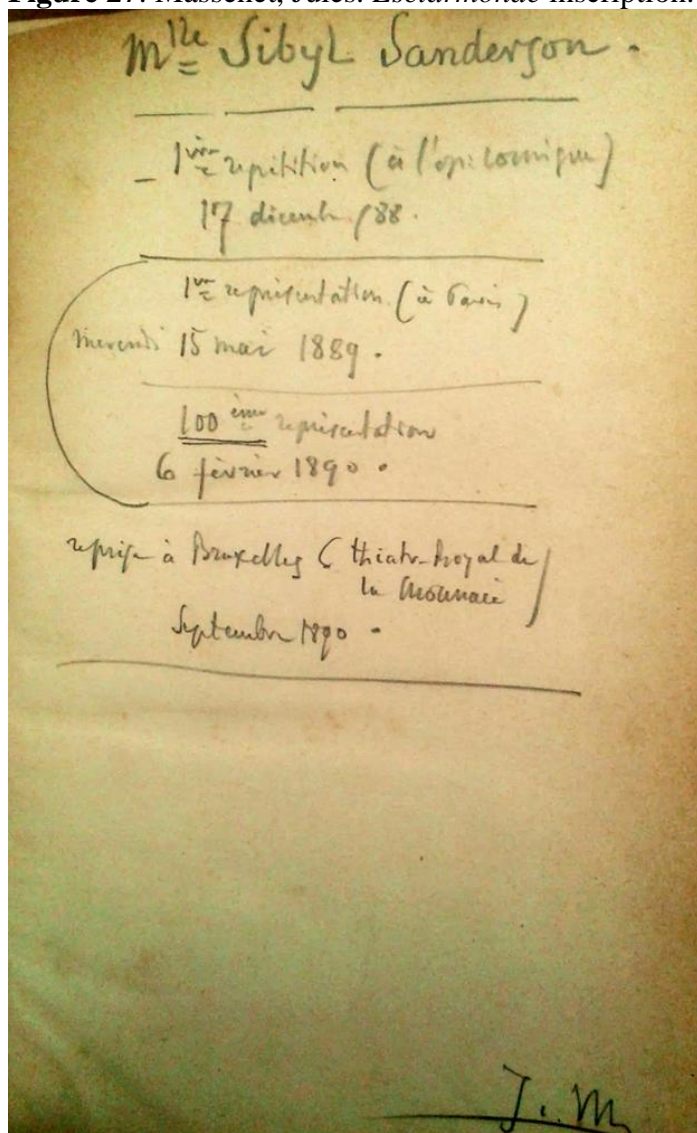 Figure 27. Massenet, Jules. Esclarmonde inscription.
Mlle Sibyl Sanderson.
– 1ère répétition (à l'op: comique)
17 décemb / 88.
1ère représentation (à Paris)
mercredi 15 mai 1889.
100ème représentation
6 février 1890.
reprise à Bruxelles (théatre Royal de
la Monnaie)
Septembre 1890.
J. M